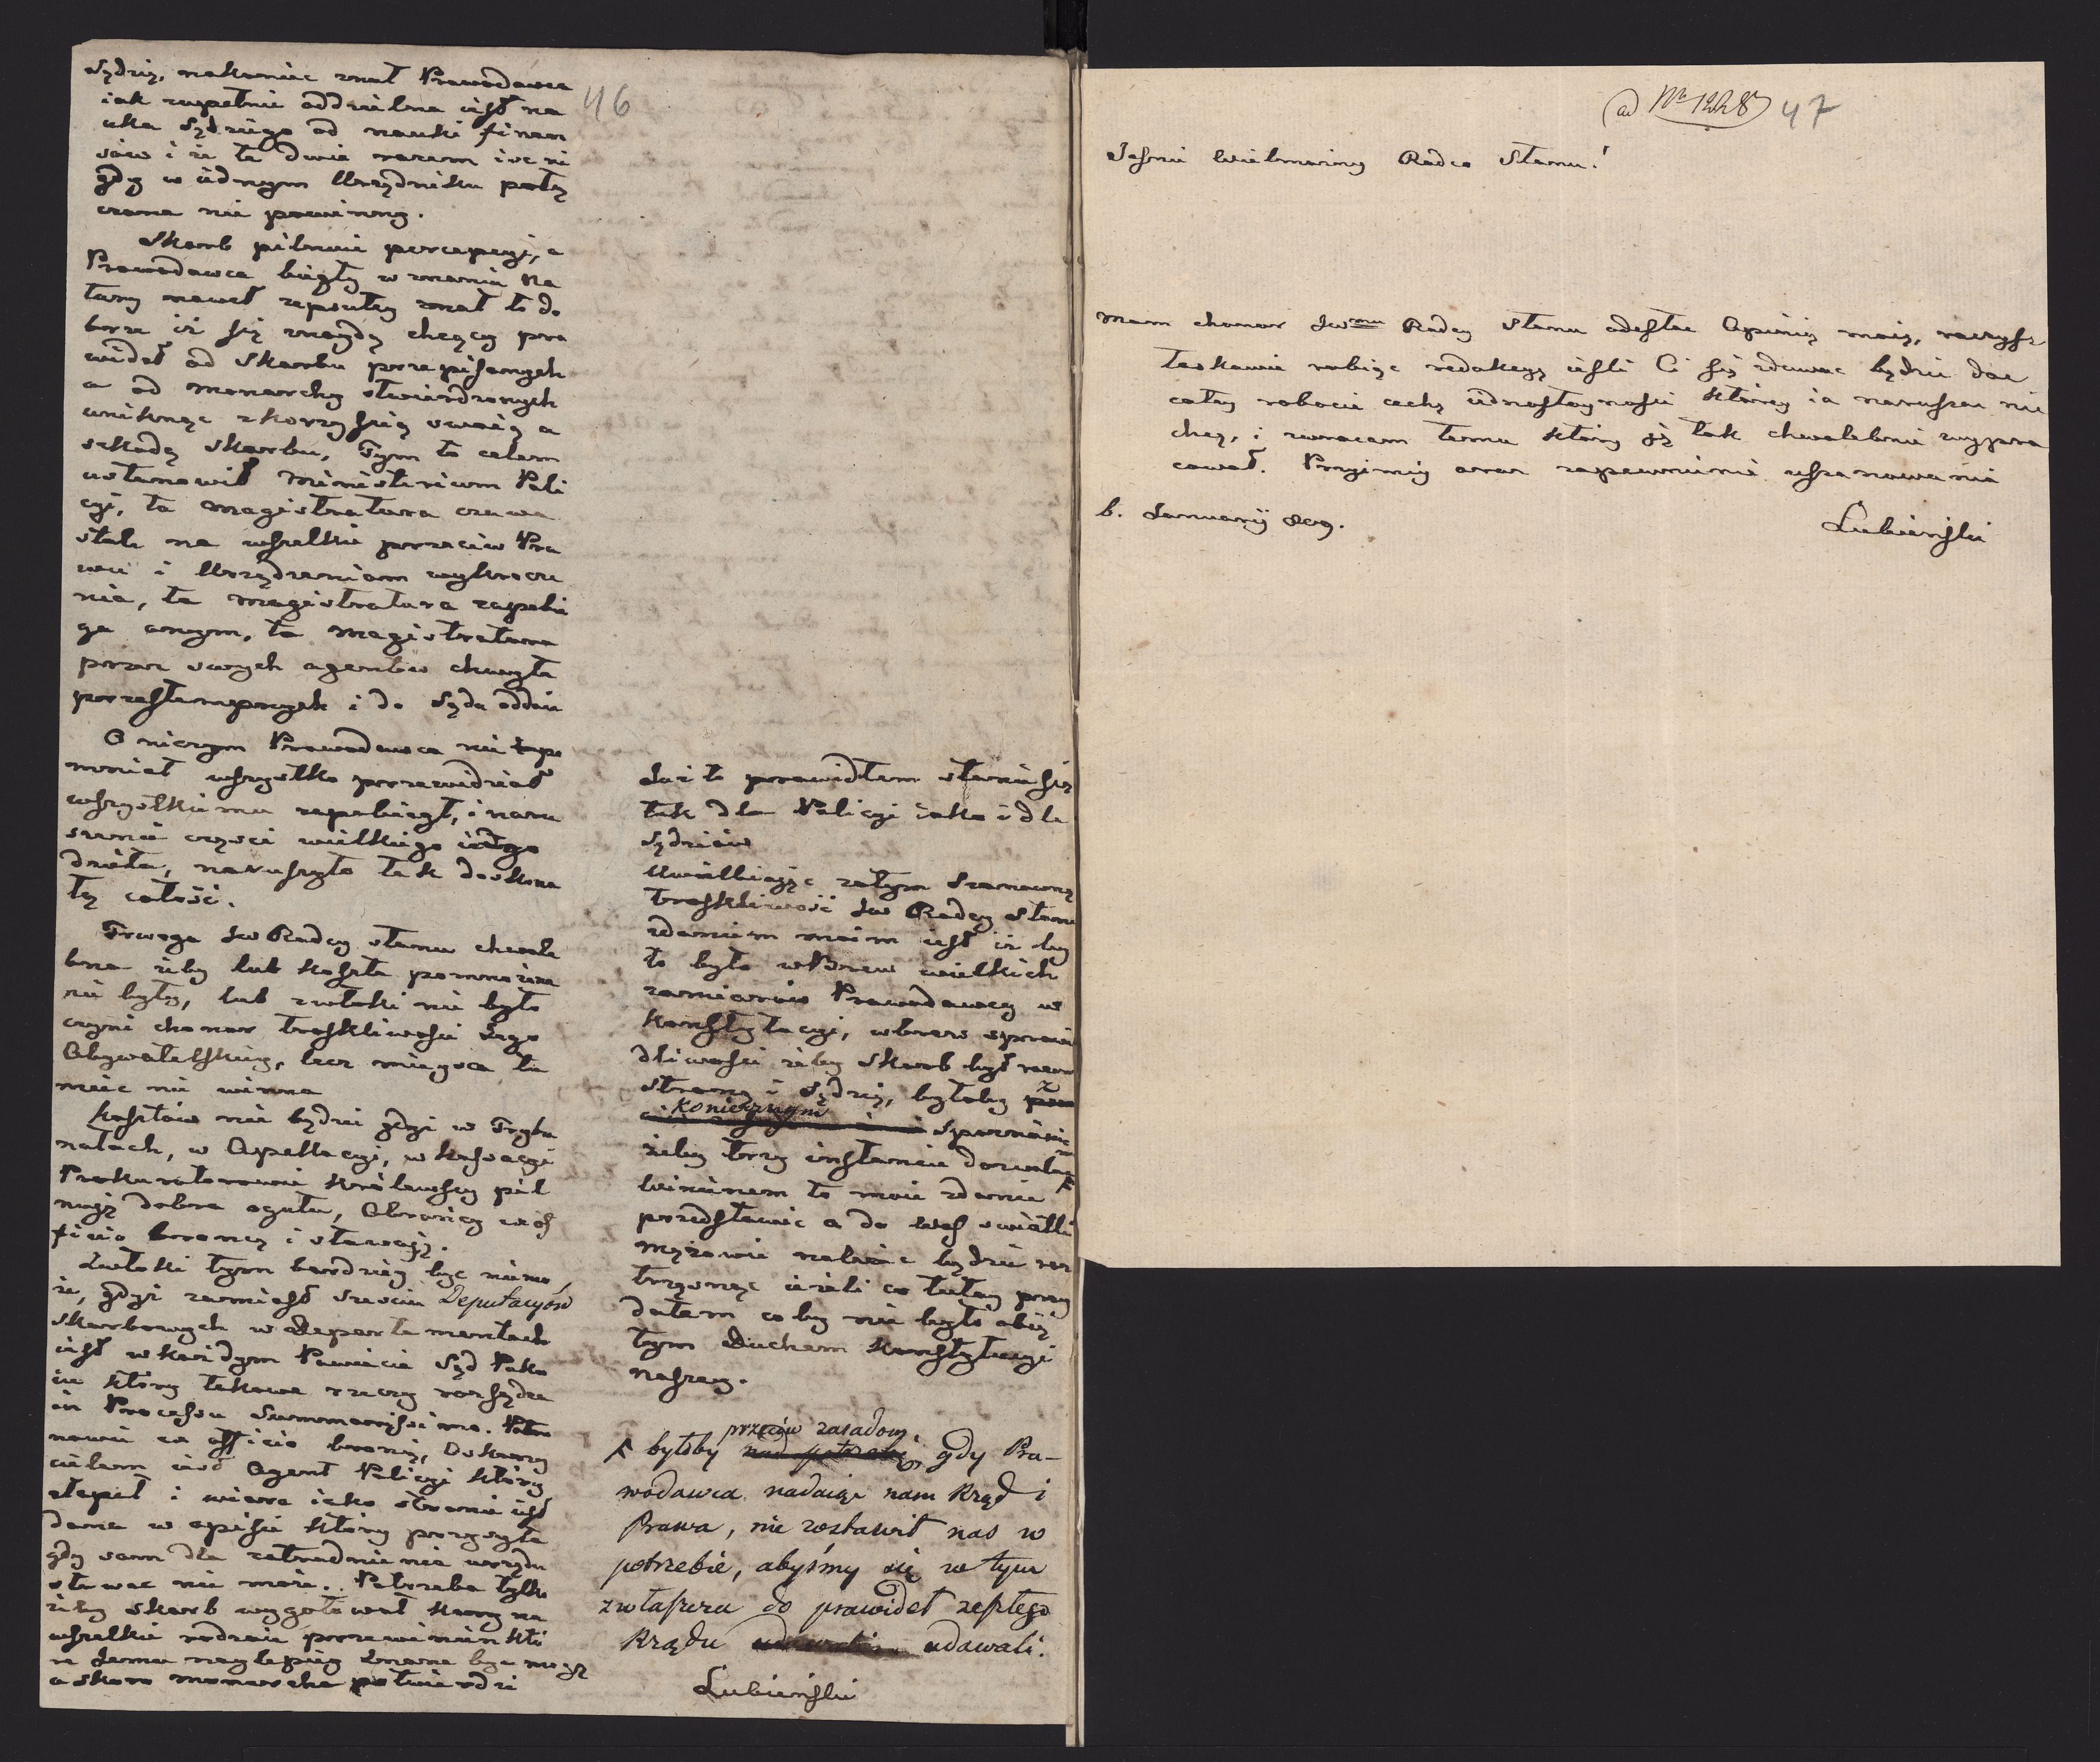 46
Sędzią, nakoniec znał Prawodawca
iak zupełnie oddzielna iest na
uka Sędziego od nauki finan
sów i że te dwie razem iść ni
gdy w iednym Urzędniku połą
czone nie powinny.
Skarb pilnuie percepcyi, a
Prawodawca biegły w znaniu Na
tury nawet zepsutey znał to do
brze iż się znaydą chcący pra
wideł od Skarbu przepisanych
a od Monarchy stwierdzonych
uniknąc z korzyścią swoią a
szkodą Skarbu, Tym to celem
ustanowił Ministerium Poli
cyi, ta Magistratura czuwa
stale na wszelkie przeciw Pra
wu i Urządzeniom wykrocze
nia, ta Magistratura zapobie
ga onym, ta Magistratura
przez swych agentów chwyta
przestempnych i do Sądu oddaie
O niczym Prawodawca nie zapo
mniał wszystko przewidział
wszystkiemu zapobiegł, i naru
szenie części wielkiego iego
dzieła, naruszyło tak doskona
łą całość.
Trwoga JW Radcy Stanu chwale
bna żeby lub koszta pomnożone
nie były, lub zwłoki nie było
czyni chonor troskliwości Jego
Obywatelskiey, lecz mieysca tu
mieć nie winna
Kosztów nie będzie gdyż w Trybu
nałach, w Apellacyi, w Kassacyi
Prokuratorowie Królewscy pil
nuią dobra ogułu, Obrońcy ex of
ficio bronią i stawaią.
Zwłoki tym bardziey byc niemo
że, gdyż zamiast sześciu Deputacyów
Skarbowych w Departamentach
iest w każdym Powiecie Sąd Poko
iu który takowe rzeczy rozsądza
in Processu Summarissimo. Patro
nowie ex officio bronią, Oskarży
cielem iest Agent Policyi który
złapał i wiara iako stronie iest
dana w opisie który przysyła
gdy sam dla zatrudnienia urzędu
stawac nie może. Potrzeba tylko
żeby Skarb wygotował kary na
wszelkie rodzaie przewinień któ
re Jemu naylepiey znane byc mogą
a skoro Monarcha potwierdzi
Już to prawidłem stanie się
tak dla Policyi iako i dla
Sędziów
Uwielbiaiąc zatym Szanowną
troskliwość JW Radcy Stanu
zdaniem moim iest iż by
to było wbrew wielkich
zamiarów Prawodawcy w
Konstytucyi, wbrew sprawie
dliwości żeby Skarb był razem
stroną i Sędzią, byłoby z
koniecznym
żeby trzy instancie dozwolić
Winienem to moie zdanie
przedstawic a do Was swiatli
Mężowie należec będzie roz
trząsnąc ieżeli co tutay przy
dałem co by nie było obię
tym Duchem Konstytucyi
naszey.
przeciw zasadom,
byłoby nad potrzebę, gdy Pra-
wodawca nadaiąc nam Rząd i
Prawa, nie zostawił nas w
potrzebie, abyśmy się w tym
zwłaszcza do prawideł zeszłego
Rządu udawali.
Lubieński
ad Nr 1248 47
Jaśnie Wielmożny Radco Stanu!
Mam chonor JWmu Radcy Stanu odesłac Opinią moią, raczysz
łaskawie robiąc redakcyą iesli Ci się zdawac będzie dac
całey robocie cechę iednostayności którey ia naruszac nie
chcę, i zwracam temu który ią tak chwalebnie wypra
cował. Przyimiy oraz zapewnienie uszanowania
6. Januarij 809.
Lubieński